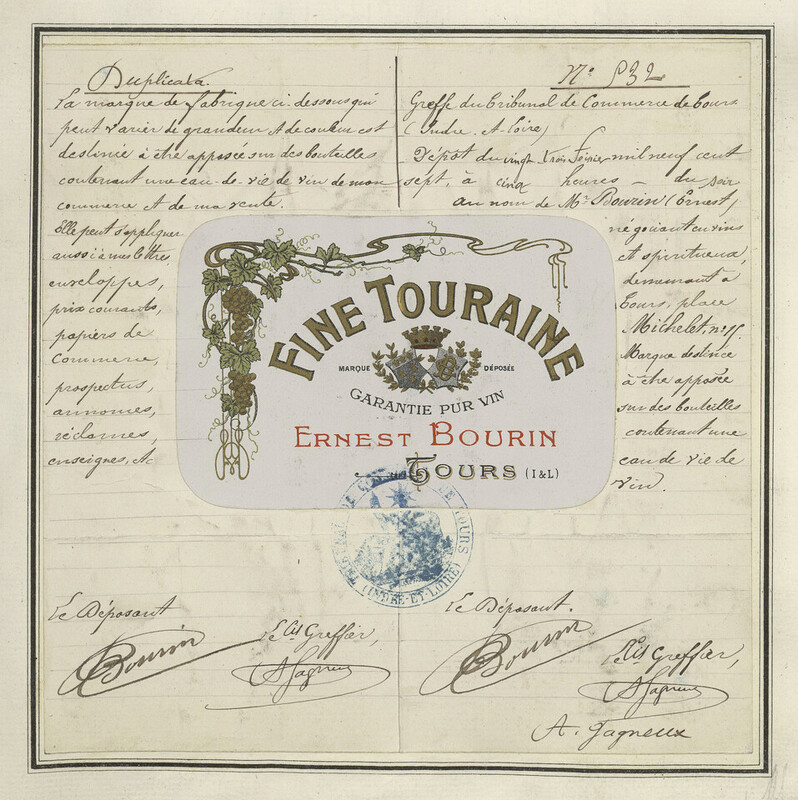 Duplicata.
La marque de fabrique ci-dessous qui
peut varier de grandeur et de couleur est
destinée à être apposée sur des bouteilles
contenant une eau-de-vie de vin de mon
commerce et de ma vente.
Elle peut s'appliquer
aussi à mes lettres
enveloppes,
prix courants,
papiers de
Commerce,
prospectus,
annonces,
réclames,
enseignes, &c
Le Déposant
Bourin
Le Cis Greffier,
A Gagneux
N° 532
Greffe du Tribunal de Commerce de Tours
(Indre-et-Loire)
Dépôt du vingt trois Février mil neuf cent
sept, à cinq heures - du soir
au nom de Mr Bourin (Ernest)
négociant en vins
et spiritueux,
demeurant à
Tours, place
Michelet, n°
Marque destinée
à être apposée
sur des bouteilles
contenant une
eau de vie de
vin.
Le Déposant.
Bourin
Le Cis Greffier,
A Gagneux
A. Gagneux
FINE TOURAINE
MARQUE DÉPOSÉE
GARANTIE PUR VIN
ERNEST BOURIN
TOURS (I & L)
TOURS
(INDRE-ET-LOIRE)